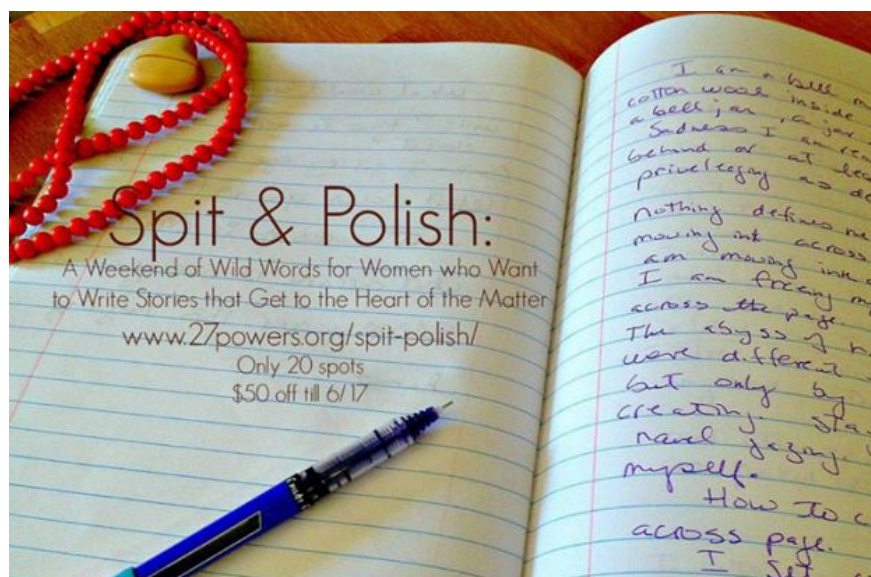 Spit & Polish:
A Weekend of Wild Words for Women who Want
to Write Stories that Get to the Heart of the Matter
www.27powers.org/spit-polish/
Only 20 spots
$50 off till 6/17
I am a bell
cotton wool inside
a bell jar, a jar
Sadness I am
behind or at
priveleging as
nothing defines me
moving ink across
am moving ink
I am freeing
across the page.
The abyss of
were different
but only by
creating.
navel gazing.
myself.
How to
across page.
I set